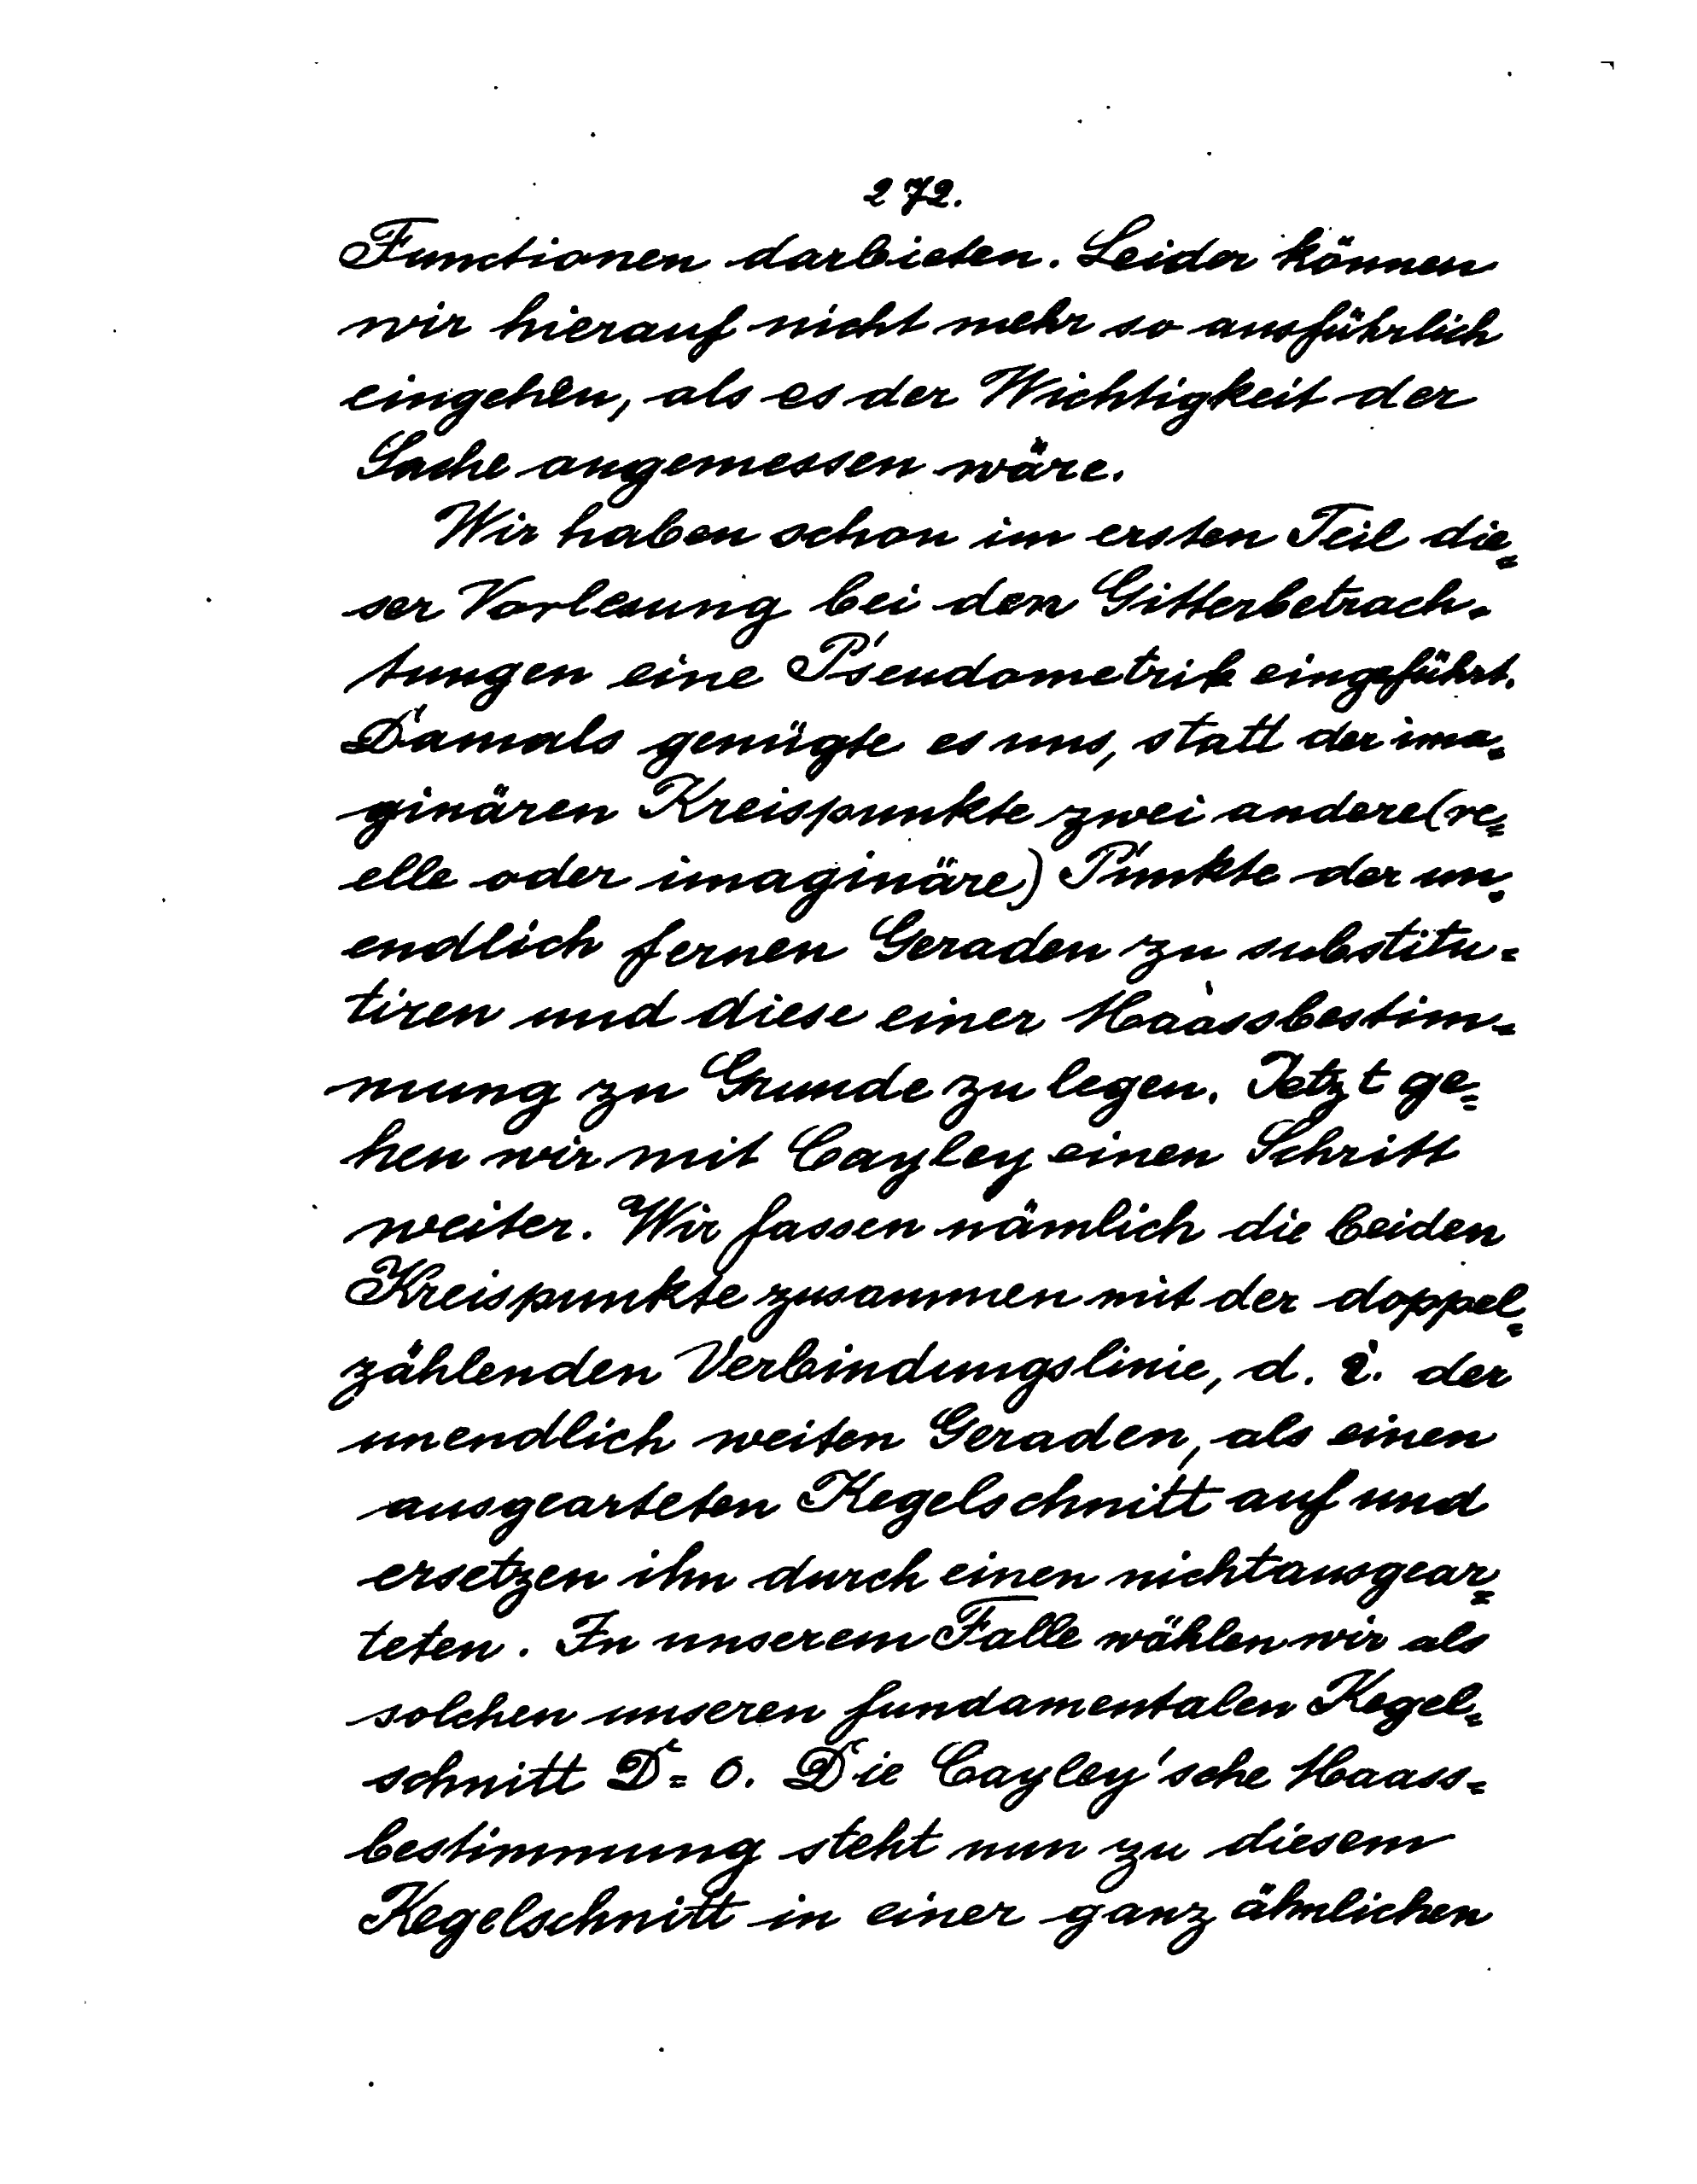 272.
Functionen darbieten. Leider können
wir hierauf nicht mehr so ausführlich
eingehen, als es der Wichtigkeit der
Sache angemessen wäre.
Wir haben schon im ersten Teil die=
ser Vorlesung bei den Gitterbetrach=
tungen eine Pseudometrik eingeführt.
Damals genügte es uns, statt der ima=
ginären Kreispunkte zwei andere (re=
elle oder imaginäre) Punkte der un=
endlich fernen Geraden zu substitu=
tiren und diese einer Maassbestim=
mung zu Grunde zu legen. Jetzt ge=
hen wir mit Cayley einen Schritt
weiter. Wir fassen nämlich die beiden
Kreispunkte zusammen mit der doppel=
zählenden Verbindungslinie, d. i. der
unendlich weiten Geraden, als einen
ausgearteten Kegelschnitt auf und
ersetzen ihn durch einen nichtausgear=
teten. In unserem Falle wählen wir als
solchen unseren fundamentalen Kegel=
schnitt D = 0. Die Cayley'sche Maass=
bestimmung steht nun zu diesem
Kegelschnitt in einer ganz ähnlichen